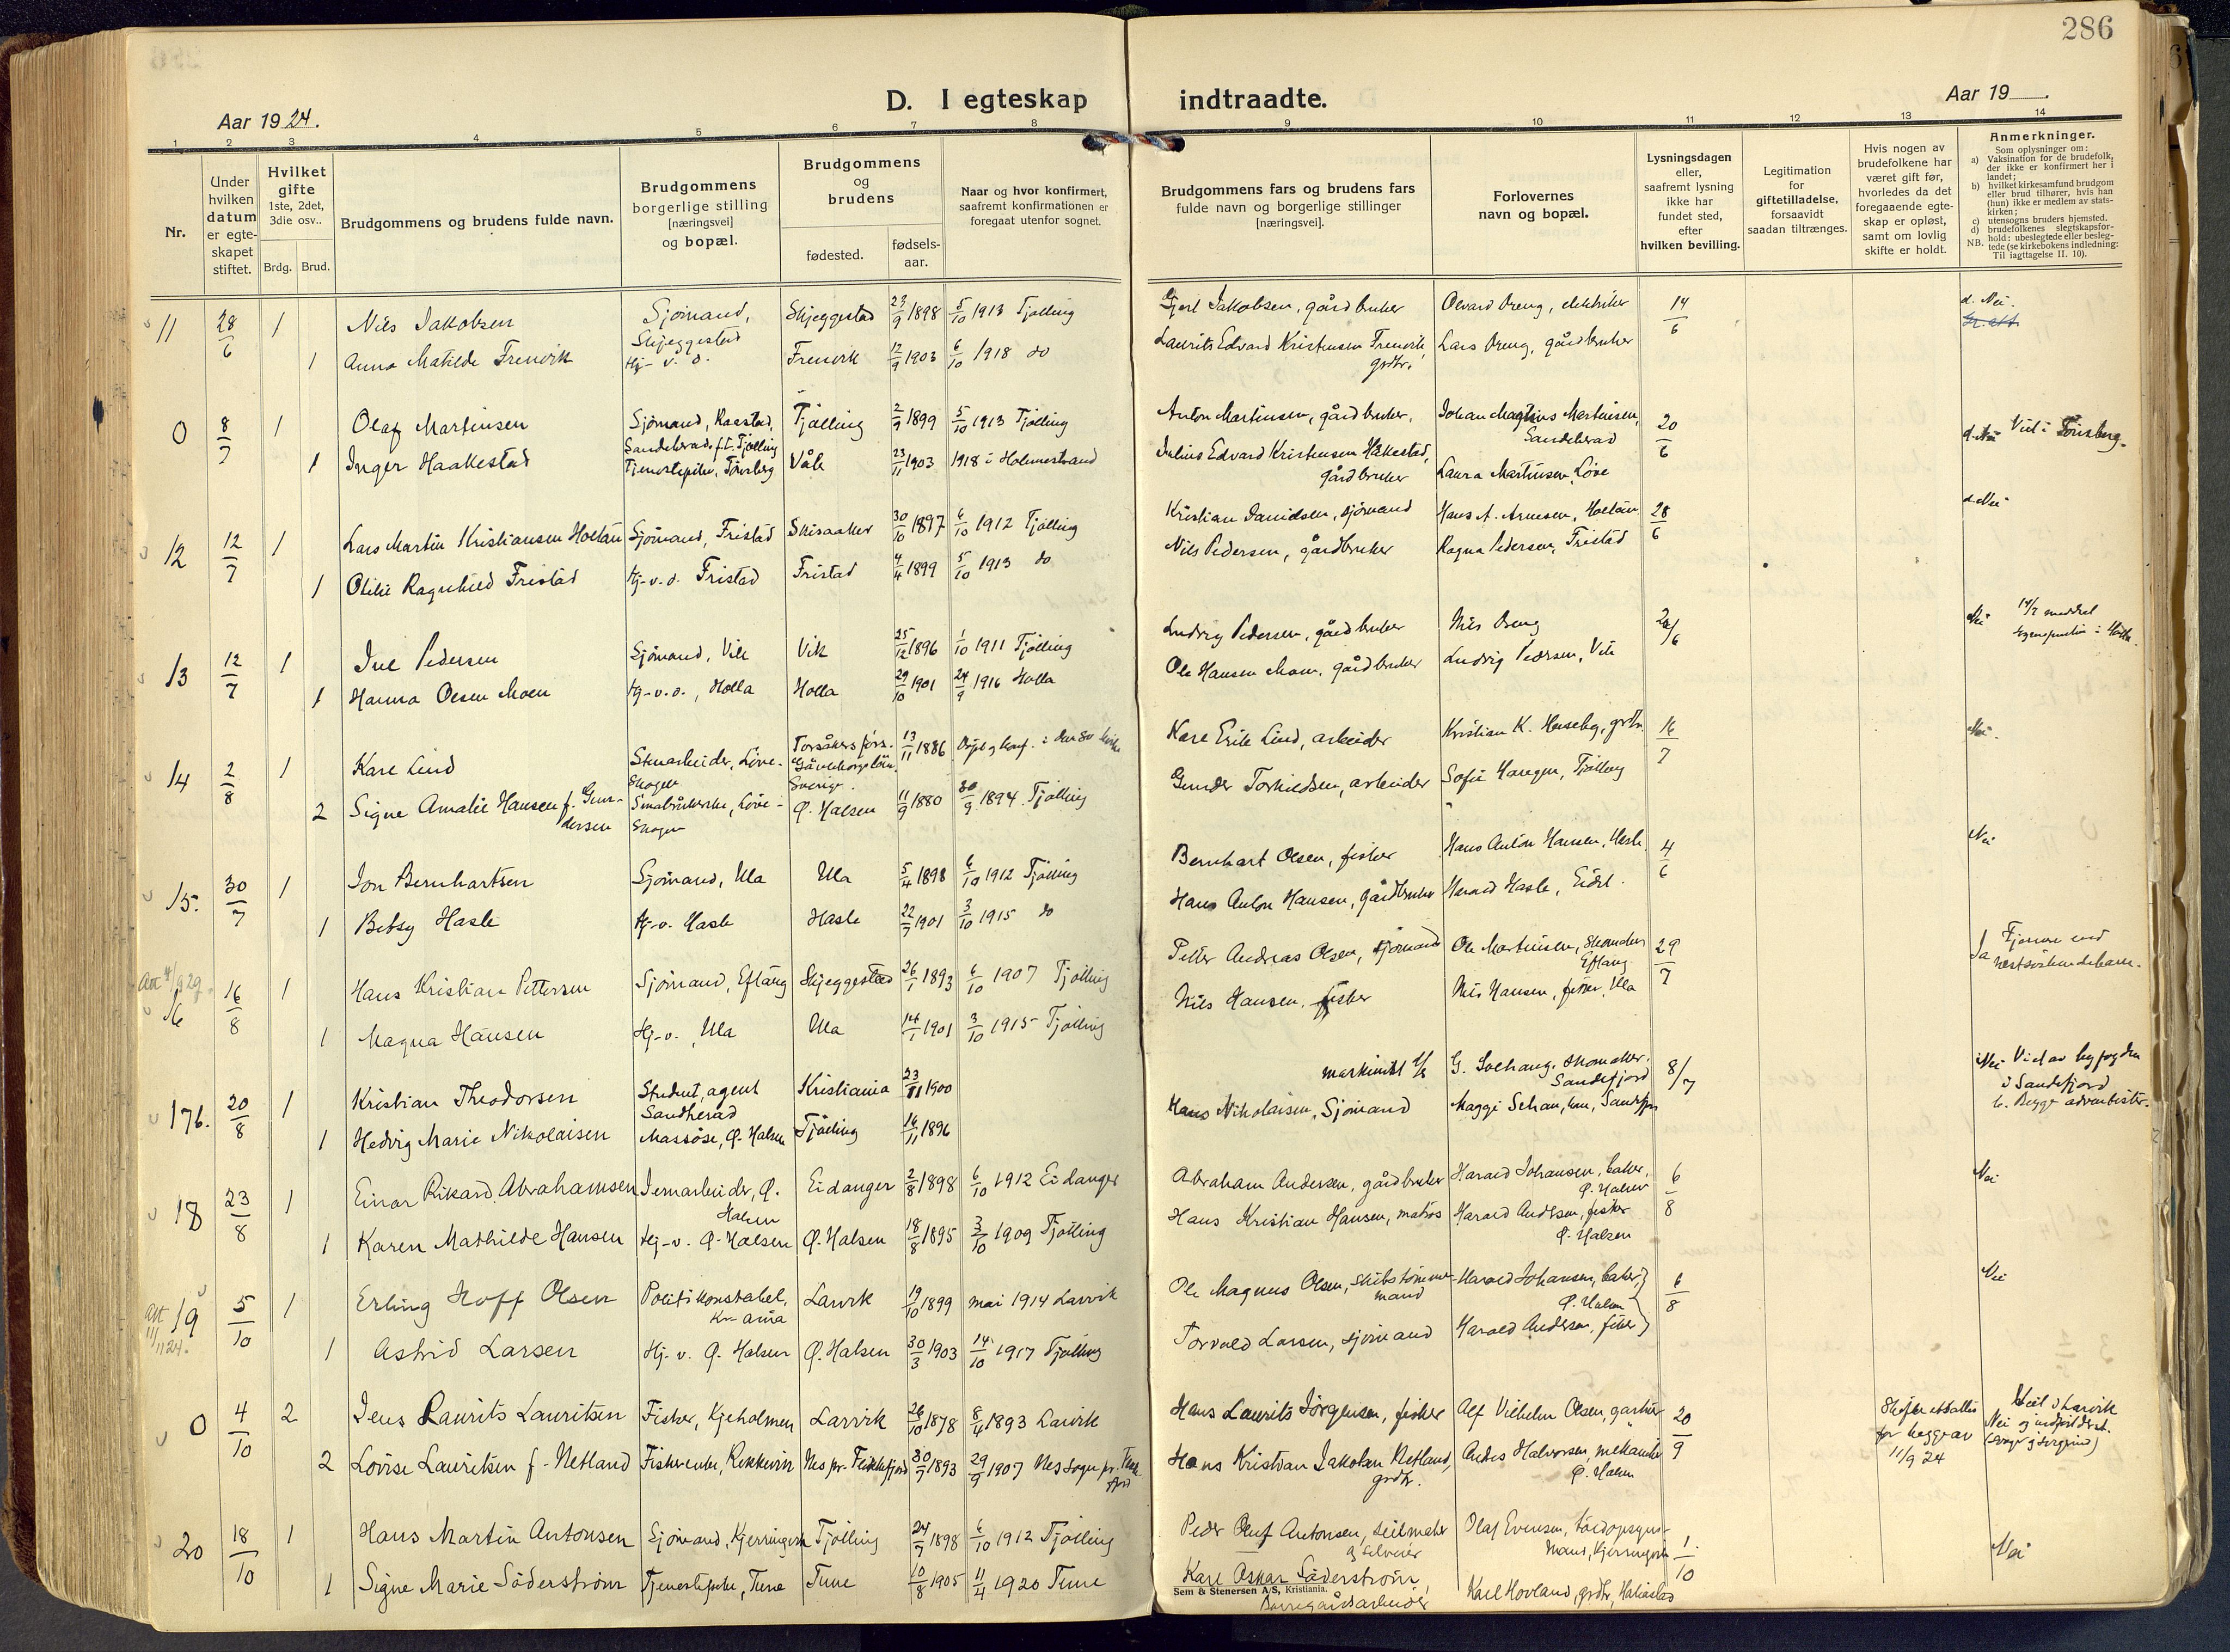 286
Aar 1924.
D. I egteskap indtraadte.
Aar 19
1 2 3 4 5 6 7 8 9 10 11 12 13 14
Nr.
Under hvilken datum er egte-skapet stiftet.
Hvilket gifte 1ste, 2det, 3die osv..
Brdg. Brud.
Brudgommens og brudens fulde navn.
Brudgommens borgerlige stilling [næringsvei] og bopæl.
Brudgommens og brudens
fødested.
fødsels-aar.
Naar og hvor konfirmert, saafremt konfirmationen er foregaat utenfor sognet.
Brudgommens fars og brudens fars fulde navn og borgerlige stillinger [næringsvei].
Forlovernes navn og bopæl.
Lysningsdagen eller, saafremt lysning ikke har fundet sted, efter hvilken bevilling.
Legitimation for giftetilladelse, forsaavidt saadan tiltrænges.
Hvis nogen av brudefolkene har været gift før, hvorledes da det foregaaende egte-skap er opløst, samt om lovlig skifte er holdt.
Anmerkninger.
Som oplysninger om:
a) Vaksination for de brudefolk, der ikke er konfirmert her i landet;
b) hvilket kirkesamfund brudgom eller brud tilhører, hvis han (hun) ikke er medlem av stats-kirken;
c) utensogns bruders hjemsted.
d) brudefolkenes slegtskapsfor-hold: ubeslegtede eller besleg-tede (se kirkebokens indledning:
NB. Til iagttagelse II. 10).
11 28/6 1 Nils Jakobsen Sjømand, Skjeggestad Skjeggestad 23/9 1898 5/10 1913 Tjølling Gjert Jakobsen, gårdbruker Oevard Øreng, elektriker 14/6 d. Nei.
1 Anna Matilde Frenvik Hj- v. d. Frenvik 12/9 1903 6/10 1918 do Laurits Edvard Kristensen Frenvik, grdbr. Lars Øreng, gårdbruker
0 8/7 1 Olaf Martinsen Sjømand, Raastad, Sandeherad, f.t. Tjølling Tjølling 2/7 1899 5/10 1913 Tjølling Anton Martinsen, gårdbruker. Johan Magnus Martinsen, Sandeherad 20/6 d. Nei Viet i Tønsberg.
1 Inger Haakestad Tjenestepike, Tønsberg Våle 23/11 1903 1918 i Holmestrand Julius Edvard Kristensen Håkestad, gårdbruker Laura Martinsen, Løve
12 12/7 1 Lars Martin Kristiansen Holtan Sjømand, Fristad Skisaaker 30/10 1897 6/10 1912 Tjølling Kristian Danielsen, sjømand Hans A. Arnesen, Holtan 28/6 d. Nei
1 Otilie Ragnhild Fristad Hj-v.d. Fristad Fristad 4/4 1899 5/10 1913 do Nils Pedersen, gårdbruker Ragna Pedersen, Fristad
13 12/7 1 Iver Pedersen Sjømand, Vik Vik 25/12 1896 1/10 1911 Tjølling Ludvig Pedersen, gårdbruker Nils Øreng 24/6 Nei 14/7 meddel sogneprest i Holla.
1 Hanna Olsen Moen Hj-v.d., Holla Holla 29/10 1901 24/9 1916 Holla Ole Hansen Moen, gårdbruker Ludvig Pedersen, Vik
14 2/8 1 Karl Lind Stenarbeider, Løve-Skogen Torsåkers förs. Gävleborgs län, Sverige 13/11 1886 Døpt og konf. i den sv. kirke Karl Erik Lind, arbeider Kristian K. Huseby, grdbr. 16/7 Nei.
2 Signe Amalie Hansen f. Gundersen Småbrukerske, Løve-Skogen Ø. Halsen 11/9 1880 30/9 1894 Tjølling Gunder Torkildsen, arbeider Sofie Haregn, Tjølling
15. 30/7 1 Jon Bernhartsen Sjømand, Ula Ula 5/4 1898 6/10 1912 Tjølling Bernhart Olsen, fisker Hans Anton Hansen, Hasle 4/6 Nei
1 Betsy Hasle Hj-v. Hasle Hasle 22/7 1901 3/10 1915 do Hans Anton Hansen, gårdbruker Harald Hasle, Eidet.
Att 4/9 29. 16 16/8 1 Hans Kristian Pettersen Sjømand, Eftang Skjeggestad 26/1 1893 6/10 1907 Tjølling Petter Andreas Olsen, sjømand Ole Martinsen, Skomaker Eftang 29/7 Ja Fjernere end næstsøskendebarn.
1 Magna Hansen Hj-v., Ula Ula 14/1 1901 3/10 1915 Tjølling Nils Hansen, fisker Nils Hansen, fisker, Ula
17b. 20/8 1 Kristian Theodorsen Student, agent Sandherad Kristiania 23/11 1900 maskinist G. Solhaug, skomaker. Sandefjord 8/7 Nei Viet av byfogden i Sandefjord b. Begge adventister.
1 Hedvig Marie Nikolaisen Massøse, Ø. Halsen Tjølling 16/11 1896 Hans Nikolaisen, Sjømand Maggi Schau, Sandefjord
18 23/8 1 Einar Rikard Abrahamsen Jernarbeider, Ø. Halsen Eidanger 2/8 1898 6/10 1912 Eidanger Abraham Andersen, gårdbruker Harald Johansen, baker, Ø. Halsen 6/8 Nei
1 Karen Mathilde Hansen Hj-v. Ø. Halsen Ø. Halsen 18/8 1895 3/10 1909 Tjølling Hans Kristian Hansen, matros Harald Andersen, fisker Ø. Halsen
Att 11/11 24. 19 5/10 1 Erling Hoff Olsen Politikonstabel, Kr-ania Larvik 19/10 1899 mai 1914 Larvik Ole Magnus Olsen, skibstømmermand Harald Johansen, baker, Ø. Halsen 6/8 Nei
1 Astrid Larsen Hj. v. Ø. Halsen Ø. Halsen 30/3 1903 14/10 1917 Tjølling Torvald Larsen, sjømand Harald Andersen, fisker
0 4/10 2 Jens Laurits Lauritsen Fisker, Kjeholmen Larvik 26/10 1878 8/4 1893 Larvik Hans Laurits Jørgensen, fisker Alf Vilhelm Olsen, gartner 20/9 Skifteattester for begge av 11/9 24 Viet i Larvik Nei
2 Lovise Lauritsen f. Netland Fiskerenke, Rekkevik Nes pr. Flekkefjord 30/7 1893 29/9 1907 Nes sogn pr. Flekkefjord Hans Kristian Jakobsen Netland, grdbr. Anders Halvorsen, mekaniker Ø. Halsen
20 18/10 1 Hans Martin Antonsen Sjømand, Kjerringvik Tjølling 24/7 1898 6/10 1912 Tjølling Peder Oluf Antonsen, seilmaker og selveier Olaf Evensen, Kjerringvik 1/10 Nei
1 Signe Marie Söderström Tjenestepike, Tune Tune 10/8 1905 11/4 1920 Tune Karl Oskar Söderström, Borregårdsarbeider Karl Hovland, grdbr, Haliastad
Sem & Stenersen A/S, Kristiania.